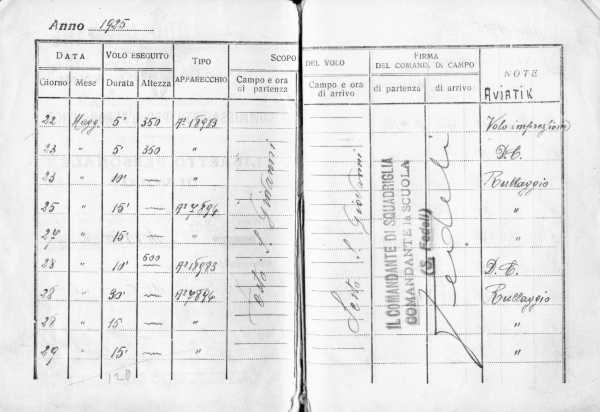 Anno 1925
DATA VOLO ESEGUITO TIPO APPARECCHIO SCOPO DEL VOLO FIRMA DEL COMAND. DI CAMPO NOTE
Giorno Mese Durata Altezza Campo e ora di partenza Campo e ora di arrivo di partenza di arrivo AVIATIK
22 Magg. 5' 350 Volo impressione
23 " 5' 350 " D.C.
23 " 10' " Rullaggio
25 " 15' "
27 " 15' " "
28 " 10' 600 D.C.
28 " 30' Rullaggio
28 " 15 " "
29 " 15' " "
Sesto S. Giovanni
Sesto S. Giovanni
IL COMANDANTE DI SQUADRIGLIA
COMANDANTE la SCUOLA
(S. Fedeli)
Fedeli